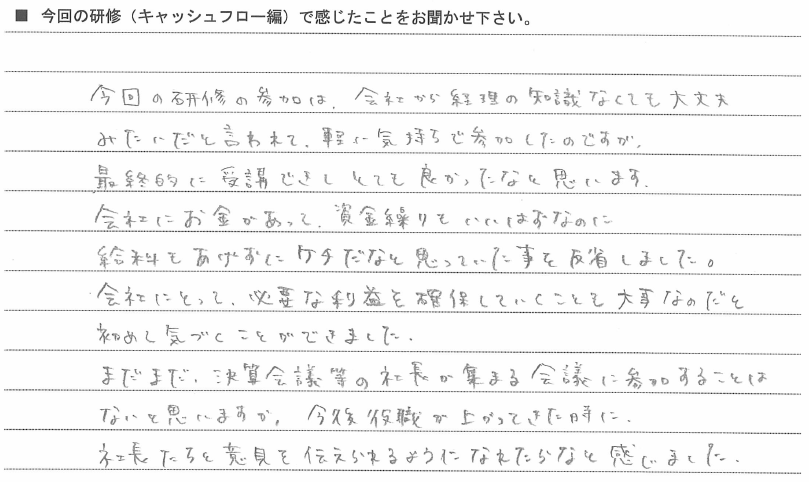 ■ 今回の研修（キャッシュフロー編）で感じたことをお聞かせ下さい。
今回の研修の参加は、会社から経理の知識なくても大丈夫
みたいだと言われて、軽い気持ちで参加したのですが、
最終的に受講できしとても良かったなと思います。
会社にお金があって、資金繰りもいいはずなのに
給料もあげずにケチだなと思っていた事を反省しました。
会社にとって、必要な利益を確保していくことも大事なのだと
初めて気づくことができました。
まだまだ、決算会議等の社長が集まる会議に参加することは
ないと思いますが、今後役職が上がってきた時に、
社長たちと意見を伝えられるようになれたらなと感じました。